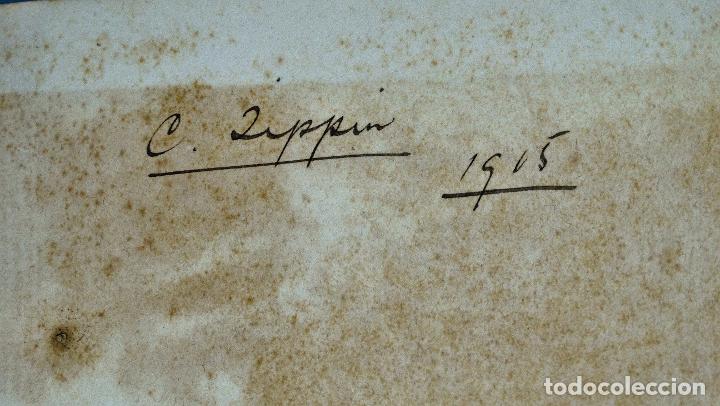 C. Zippin
1915
todocoleccion